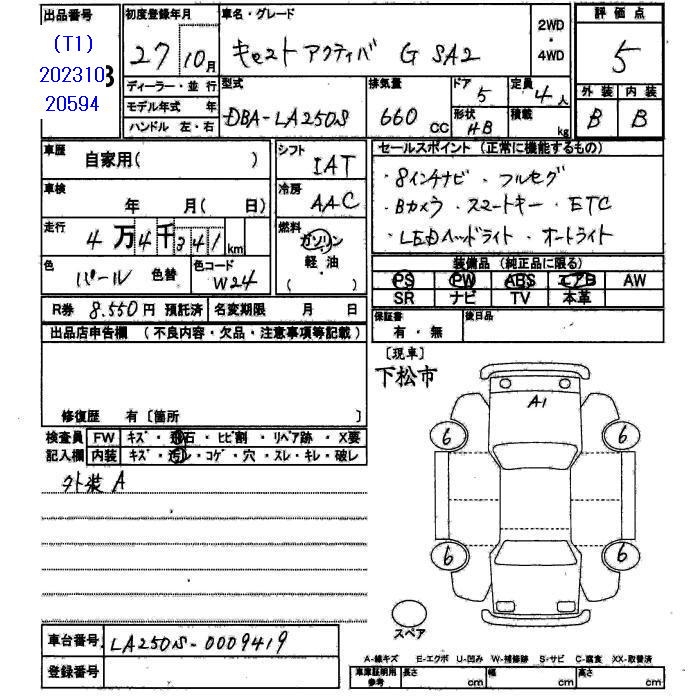 出品番号 初度登録年月 車名・グレード 2WD ・ 4WD 評価点
(T1) 27 10月 キャスト アクティバ G SA2 5
2023108
20594
ディーラー・並行 型式 排気量 ドア 定員 外装 内装
モデル年式 年 DBA-LA250S 660 CC 5 4人 B B
ハンドル 左・右 形状 HB 積載 kg
車歴 自家用( ) シフト IAT セールスポイント (正常に機能するもの)
車検 年 月( 日) 冷房 AAC
・8インチナビ ・フルセグ
・Bカメラ ・スマートキー ・ETC
・LEDヘッドライト ・オートライト
走行 4万4千341km 燃料 ガソリン ・ 軽油 ( )
色 パール 色替 色コード W24
装備品 (純正品に限る)
PS PW ABS エアB AW
SR ナビ TV 本革
R券 8.550円 預託済 名変期限 月 日
保証書 有・無 後日品
出品店申告欄 (不良内容・欠品・注意事項等記載)
[現車]
下松市
修復歴 有 [箇所 ]
検査員記入欄 FW キズ・飛石・ヒビ割・リペア跡・X要
内装 キズ・汚レ・コゲ・穴・スレ・キレ・破レ
外装 A
A1
6 6
6 6
スペア
車台番号 LA250S-0009419
登録番号
A-線キズ E-エクボ U-凹み W-補修跡 S-サビ C-腐食 XX-取替済
車庫証明用参考 長さ cm 幅 cm 高さ cm